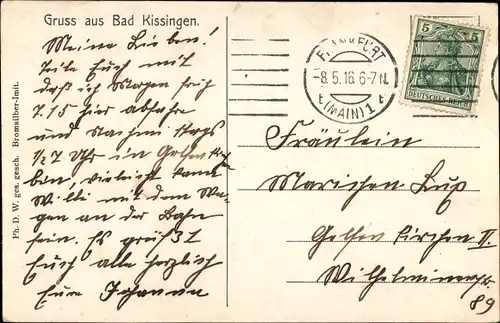 Gruss aus Bad Kissingen.
Meine Lieben!
Teile Euch mit
daß ich Morgen früh
7.15 hier abfahre
und Nachmittags
½7 Uhr in
bin, vieleicht kann
Willi mit dem Wa-
gen an der Bahn
sein. Es grüßt
Euch alle herzlich
Eure Johanna
Ph. D. W. ges. gesch. Bromsilber-Imit.
FRANKFURT
-8.5.16.6-7N.
(MAIN) 1
5 5
DEUTSCHES REICH
Fräulein
Mariechen
Gelsenkirchen II.
Wilhelminenstr
89